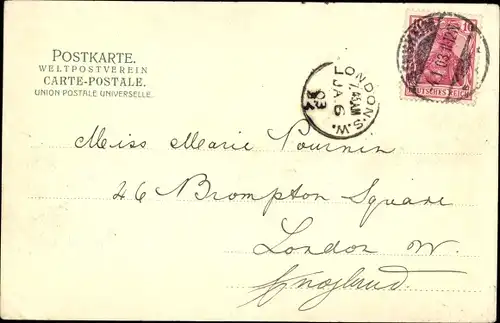 POSTKARTE.
WELTPOSTVEREIN
CARTE-POSTALE.
UNION POSTALE UNIVERSELLE.
10
DEUTSCHES REICH
LONDON.S.W.
7.45AM
JA 6
03
Miss Marie Pournin
46 Brompton Square
London W.
England.